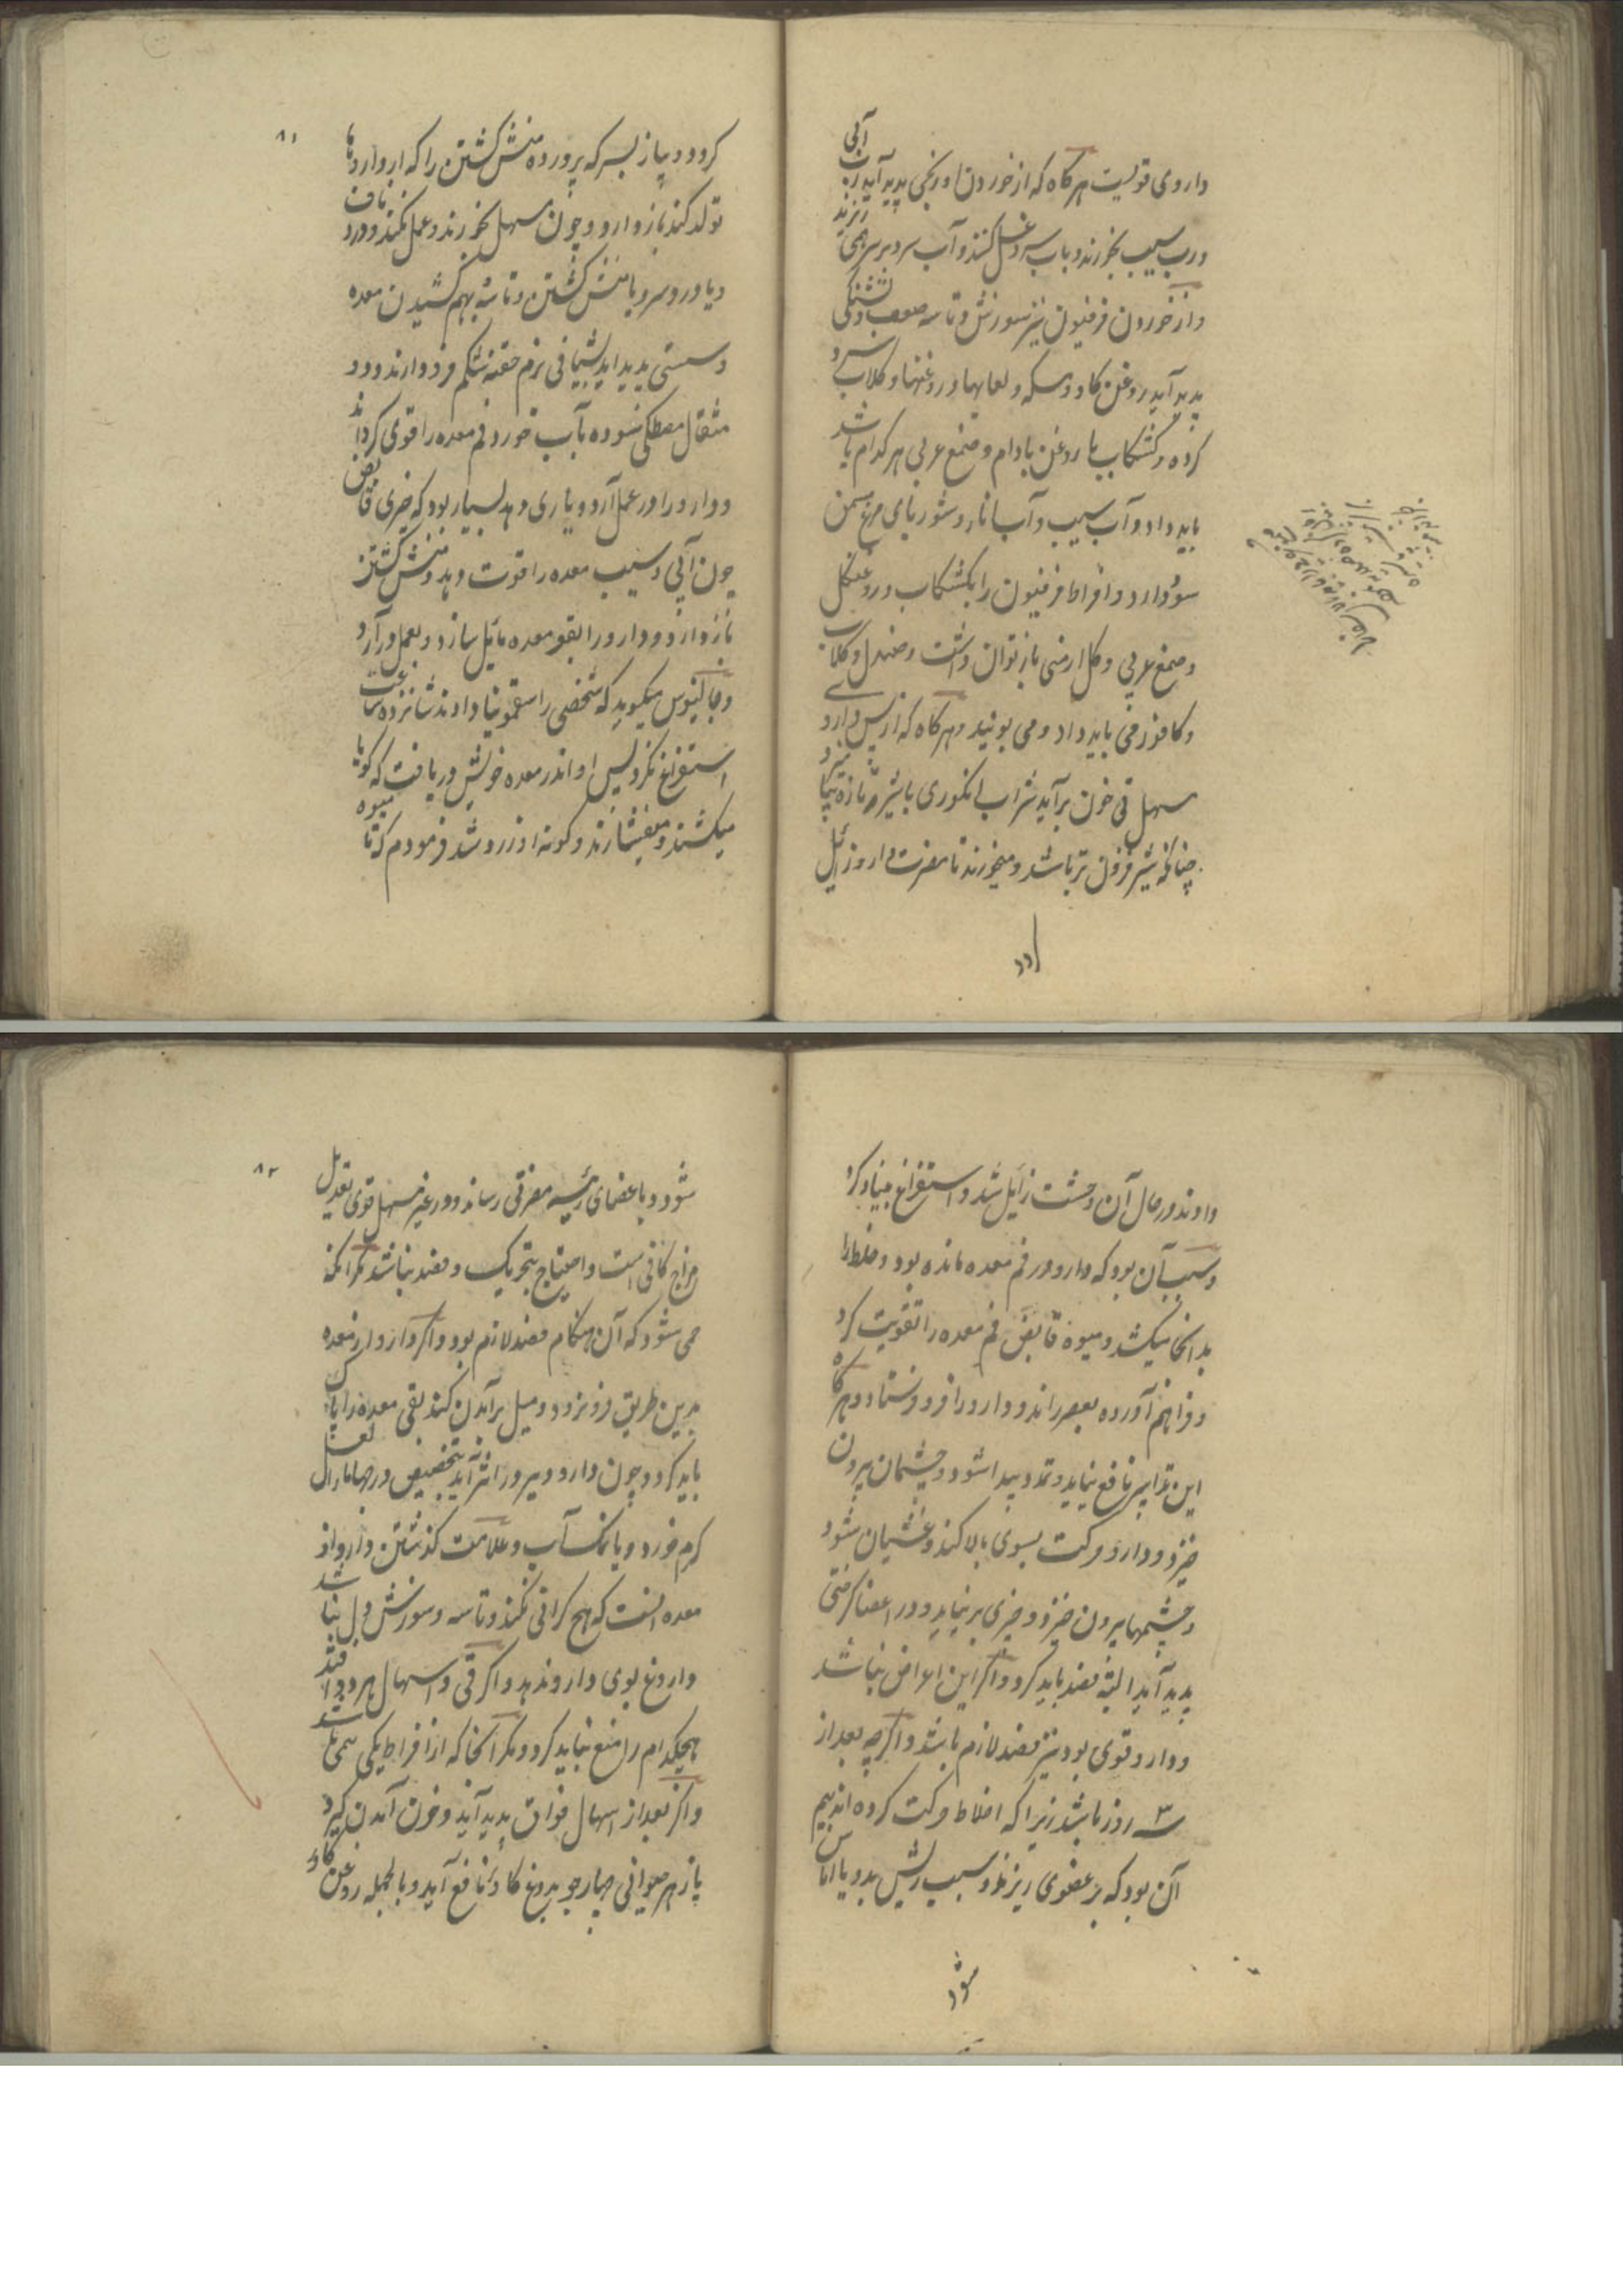 داروی قویست هرگاه که از خوردن او رنجی پدید آید رب آبی
و رب سیب بخورند و باب سرد غسل کنند و آب سرد بر سر همی ریزند
و از خوردن فرفیون نیز سوزش و تاسه صعب و تشنگی
پدید آید روغن کاو و مسکه و لعابها و روغنها و کلاب سرد
کرده و کشکاب با روغن بادام و صمغ عربی هر کدام باشد
باید داد و آب سیب و آب انار و شوربای مرغ سمن
سود دارد و افراط فرفیون را بکشکاب و روغن کل
و صمغ عربی و کل ارمنی باز توان داشت و صندل و کلاب
و کافور می باید داد و می بویند و هرگاه که از پس داروی
مسهل قی خون برآید شراب انکوری با شیر تازه
چنانکه شیر فزون تر باشد میخورند تا مضرت دارو زایل
کردد
۸۱
کردد و پیاز بسرکه پرورده منش کشتن را که از داروها
تولد کند باز دارد و چون مسهل بخورند و عمل نکند و درد ناف
و یا درد سر و یا منش کشتن و تاسه بهم کشیدن معده
و سستی پدید آید شیافی نرم حقنه بشکم فرو دارند و دو
مثقال مصطکی سوده بآب خورد فم معده را قوی کرداند
و دارو را در عمل آرد و یاری دهد بسیار بود که چیزی قابض
چون آبی و سیب معده را قوت دهد و منش کشتن
باز دارد و دارو را بقعر معده مایل سازد و بعمل درآرد
و جالینوس میکوید که شخصی را سقمونیا دادند شانزده ساعت
استفراغ نکرد پس او اندر معده خویش دریافت که کویا
میکشند و میفشارند و کونه او زرد شد فرمودم که تا میوه
دادند در حال آن وحشت زایل شد و استفراغ بنیاد کرد
و سبب آن بود که دارو در فم معده مانده بود و خلطها را
بدانجا میکشید و میوه قابض فم معده را تقویت کرد
و فراهم آورده بعصر راند و دارو را فرو فرستاد و هرکاه
این تدابیر نافع نیاید و تمدد پیدا شود و چشمان بیرون
خیزد و دارو حرکت بسوی بالا کند و غشیان شود
و چشمها بیرون خیزد و چیزی برنیاید و در اعضا کرفتی
پدید آید البته فصد باید کرد و اکر این اعراض نباشد
و دارو قوی بود نیز فصد لازم باشد و اکرچه بعد از
۳ روز باشد زیرا که اخلاط حرکت کرده اند بیم
آن بود که بر عضوی ریزند و سبب ریش بد و یا اماس
شود
۸۲
شود و باعضای رئیسه مضرتی رساند و در غیر مسهل قوی تعدیل
مزاج کافی است و احتیاج بتحریک و فصد نباشد مکر آنکه
می شود که آن هنکام فصد لازم بود و اکر دارو از معده
بدین طریق فرو نرود و میل برآمدن کند بقی معده را پاک
باید کرد و چون دارو دیر در اثر آید بتخصیص در حبها ماءالعسل
کرم خورد و یا نمک آب و علامت کذشتن دارو از
معده آنست که هیچ کرانی نکند و تاسه و سوزش دل نباشد
و اروغ بوی دارو ندهد و اکر قی و اسهال هر دو افتد
هیچکدام را منع نباید کرد و مکر آنجا که از افراط یکی بیمی باشد
و اکر بعد از اسهال فواق پدید آید و خون آمدن کیرد
پازهر حیوانی چهار جو بدوغ کاو نافع آید و بالجمله روغن کاو